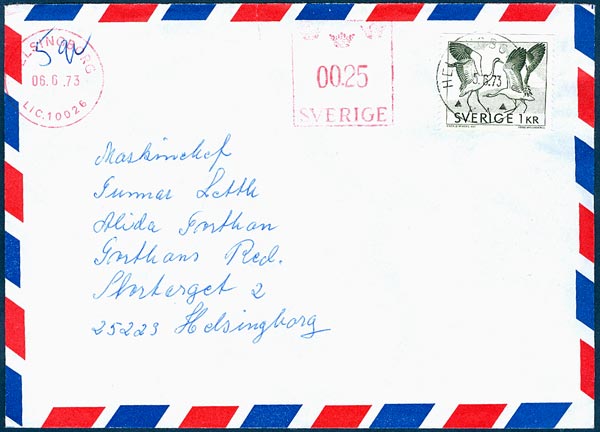 HELSINGBORG
06.6.73
LIC.10026
00.25
SVERIGE
6.73
SVERIGE 1 KR
Maskinchef
Gunnar Letth
Alida Gorthon
Gorthons Red.
Stortorget 2
25223 Helsingborg